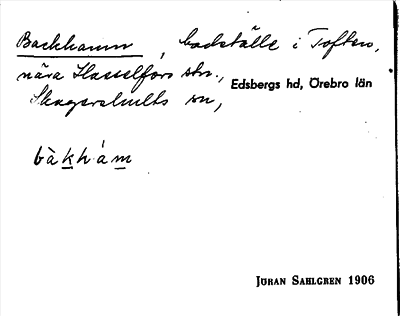 Backhamn, badställe i Toften,
nära Hasselfors stn.,
Skagershults sn, Edsbergs hd, Örebro län
bàkhám
JÖRAN SAHLGREN 1906